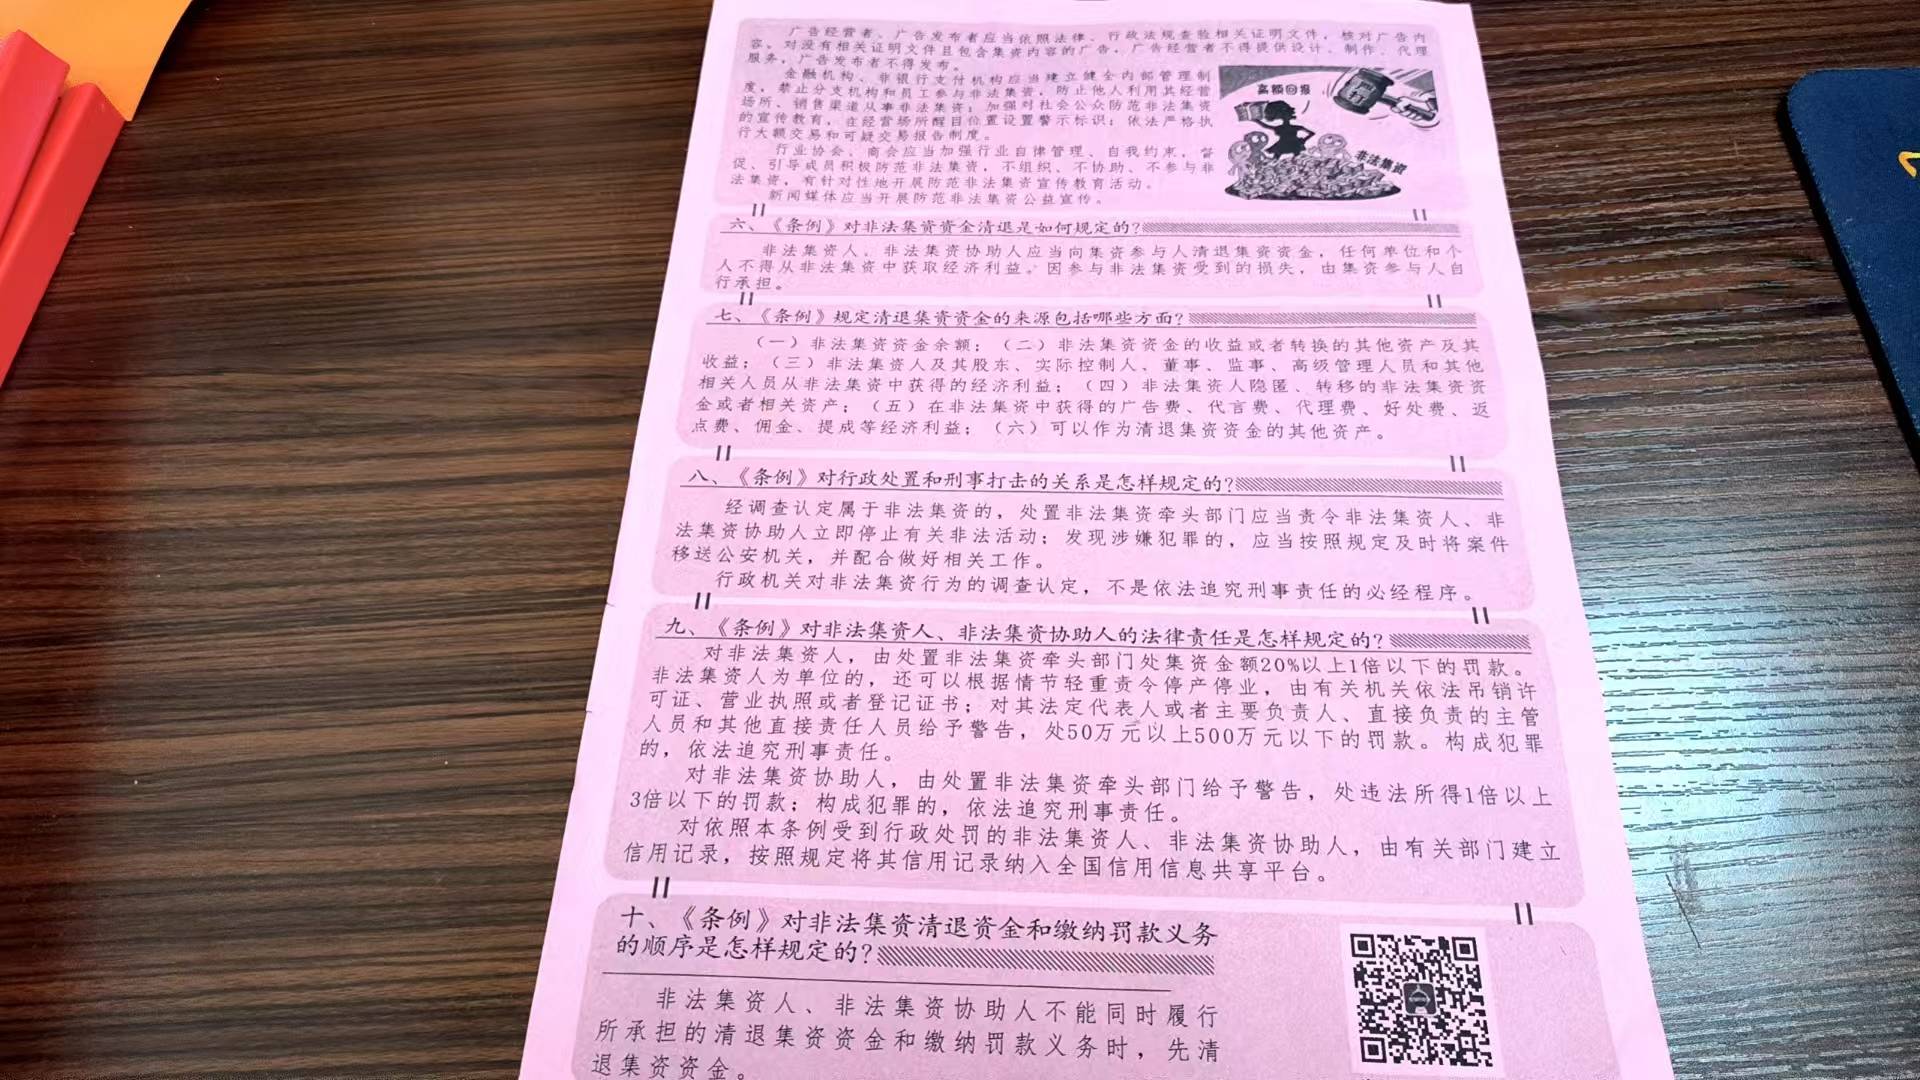 广告经营者、广告发布者应当依照法律、行政法规查验相关证明文件，核对广告内
容。对没有相关证明文件且包含集资内容的广告，广告经营者不得提供设计、制作、代理
服务，广告发布者不得发布。
金融机构、非银行支付机构应当建立健全内部管理制
度，禁止分支机构和员工参与非法集资，防止他人利用其经营
场所、销售渠道从事非法集资；加强对社会公众防范非法集资
的宣传教育，在经营场所醒目位置设置警示标识；依法严格执
行大额交易和可疑交易报告制度。
行业协会、商会应当加强行业自律管理、自我约束，督
促、引导成员积极防范非法集资，不组织、不协助、不参与非
法集资，有针对性地开展防范非法集资宣传教育活动。
新闻媒体应当开展防范非法集资公益宣传。
高额回报
非法集资
六、《条例》对非法集资资金清退是如何规定的？
非法集资人、非法集资协助人应当向集资参与人清退集资资金，任何单位和个
人不得从非法集资中获取经济利益。因参与非法集资受到的损失，由集资参与人自
行承担。
七、《条例》规定清退集资资金的来源包括哪些方面？
（一）非法集资资金余额；（二）非法集资资金的收益或者转换的其他资产及其
收益；（三）非法集资人及其股东、实际控制人、董事、监事、高级管理人员和其他
相关人员从非法集资中获得的经济利益；（四）非法集资人隐匿、转移的非法集资资
金或者相关资产；（五）在非法集资中获得的广告费、代言费、代理费、好处费、返
点费、佣金、提成等经济利益；（六）可以作为清退集资资金的其他资产。
八、《条例》对行政处置和刑事打击的关系是怎样规定的？
经调查认定属于非法集资的，处置非法集资牵头部门应当责令非法集资人、非
法集资协助人立即停止有关非法活动；发现涉嫌犯罪的，应当按照规定及时将案件
移送公安机关，并配合做好相关工作。
行政机关对非法集资行为的调查认定，不是依法追究刑事责任的必经程序。
九、《条例》对非法集资人、非法集资协助人的法律责任是怎样规定的？
对非法集资人，由处置非法集资牵头部门处集资金额20%以上1倍以下的罚款。
非法集资人为单位的，还可以根据情节轻重责令停产停业，由有关机关依法吊销许
可证、营业执照或者登记证书；对其法定代表人或者主要负责人、直接负责的主管
人员和其他直接责任人员给予警告，处50万元以上500万元以下的罚款。构成犯罪
的，依法追究刑事责任。
对非法集资协助人，由处置非法集资牵头部门给予警告，处违法所得1倍以上
3倍以下的罚款；构成犯罪的，依法追究刑事责任。
对依照本条例受到行政处罚的非法集资人、非法集资协助人，由有关部门建立
信用记录，按照规定将其信用记录纳入全国信用信息共享平台。
十、《条例》对非法集资清退资金和缴纳罚款义务
的顺序是怎样规定的？
非法集资人、非法集资协助人不能同时履行
所承担的清退集资资金和缴纳罚款义务时，先清
退集资资金。